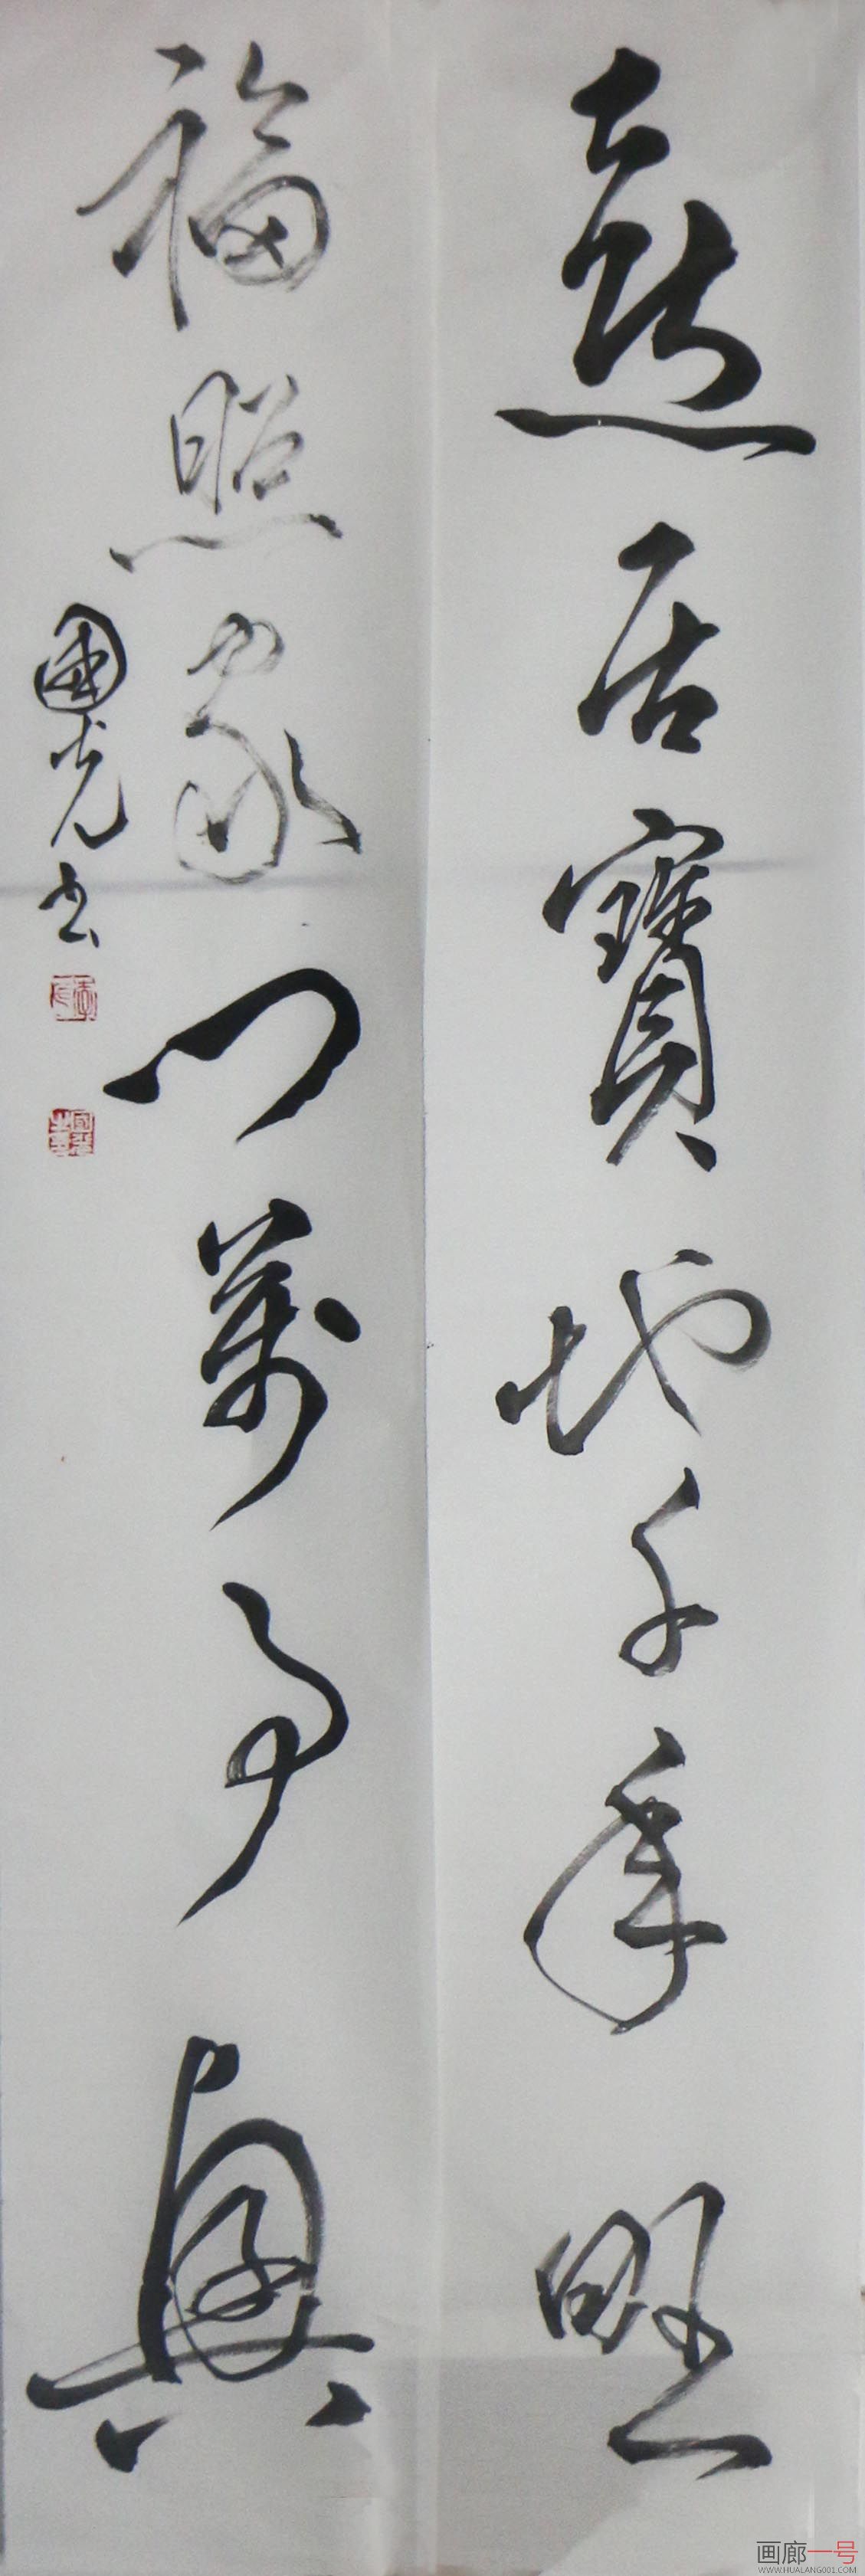 熹居寳地千年旺
福照家门萬事興
國光书
画廊一号
WWW.HUALANG001.COM